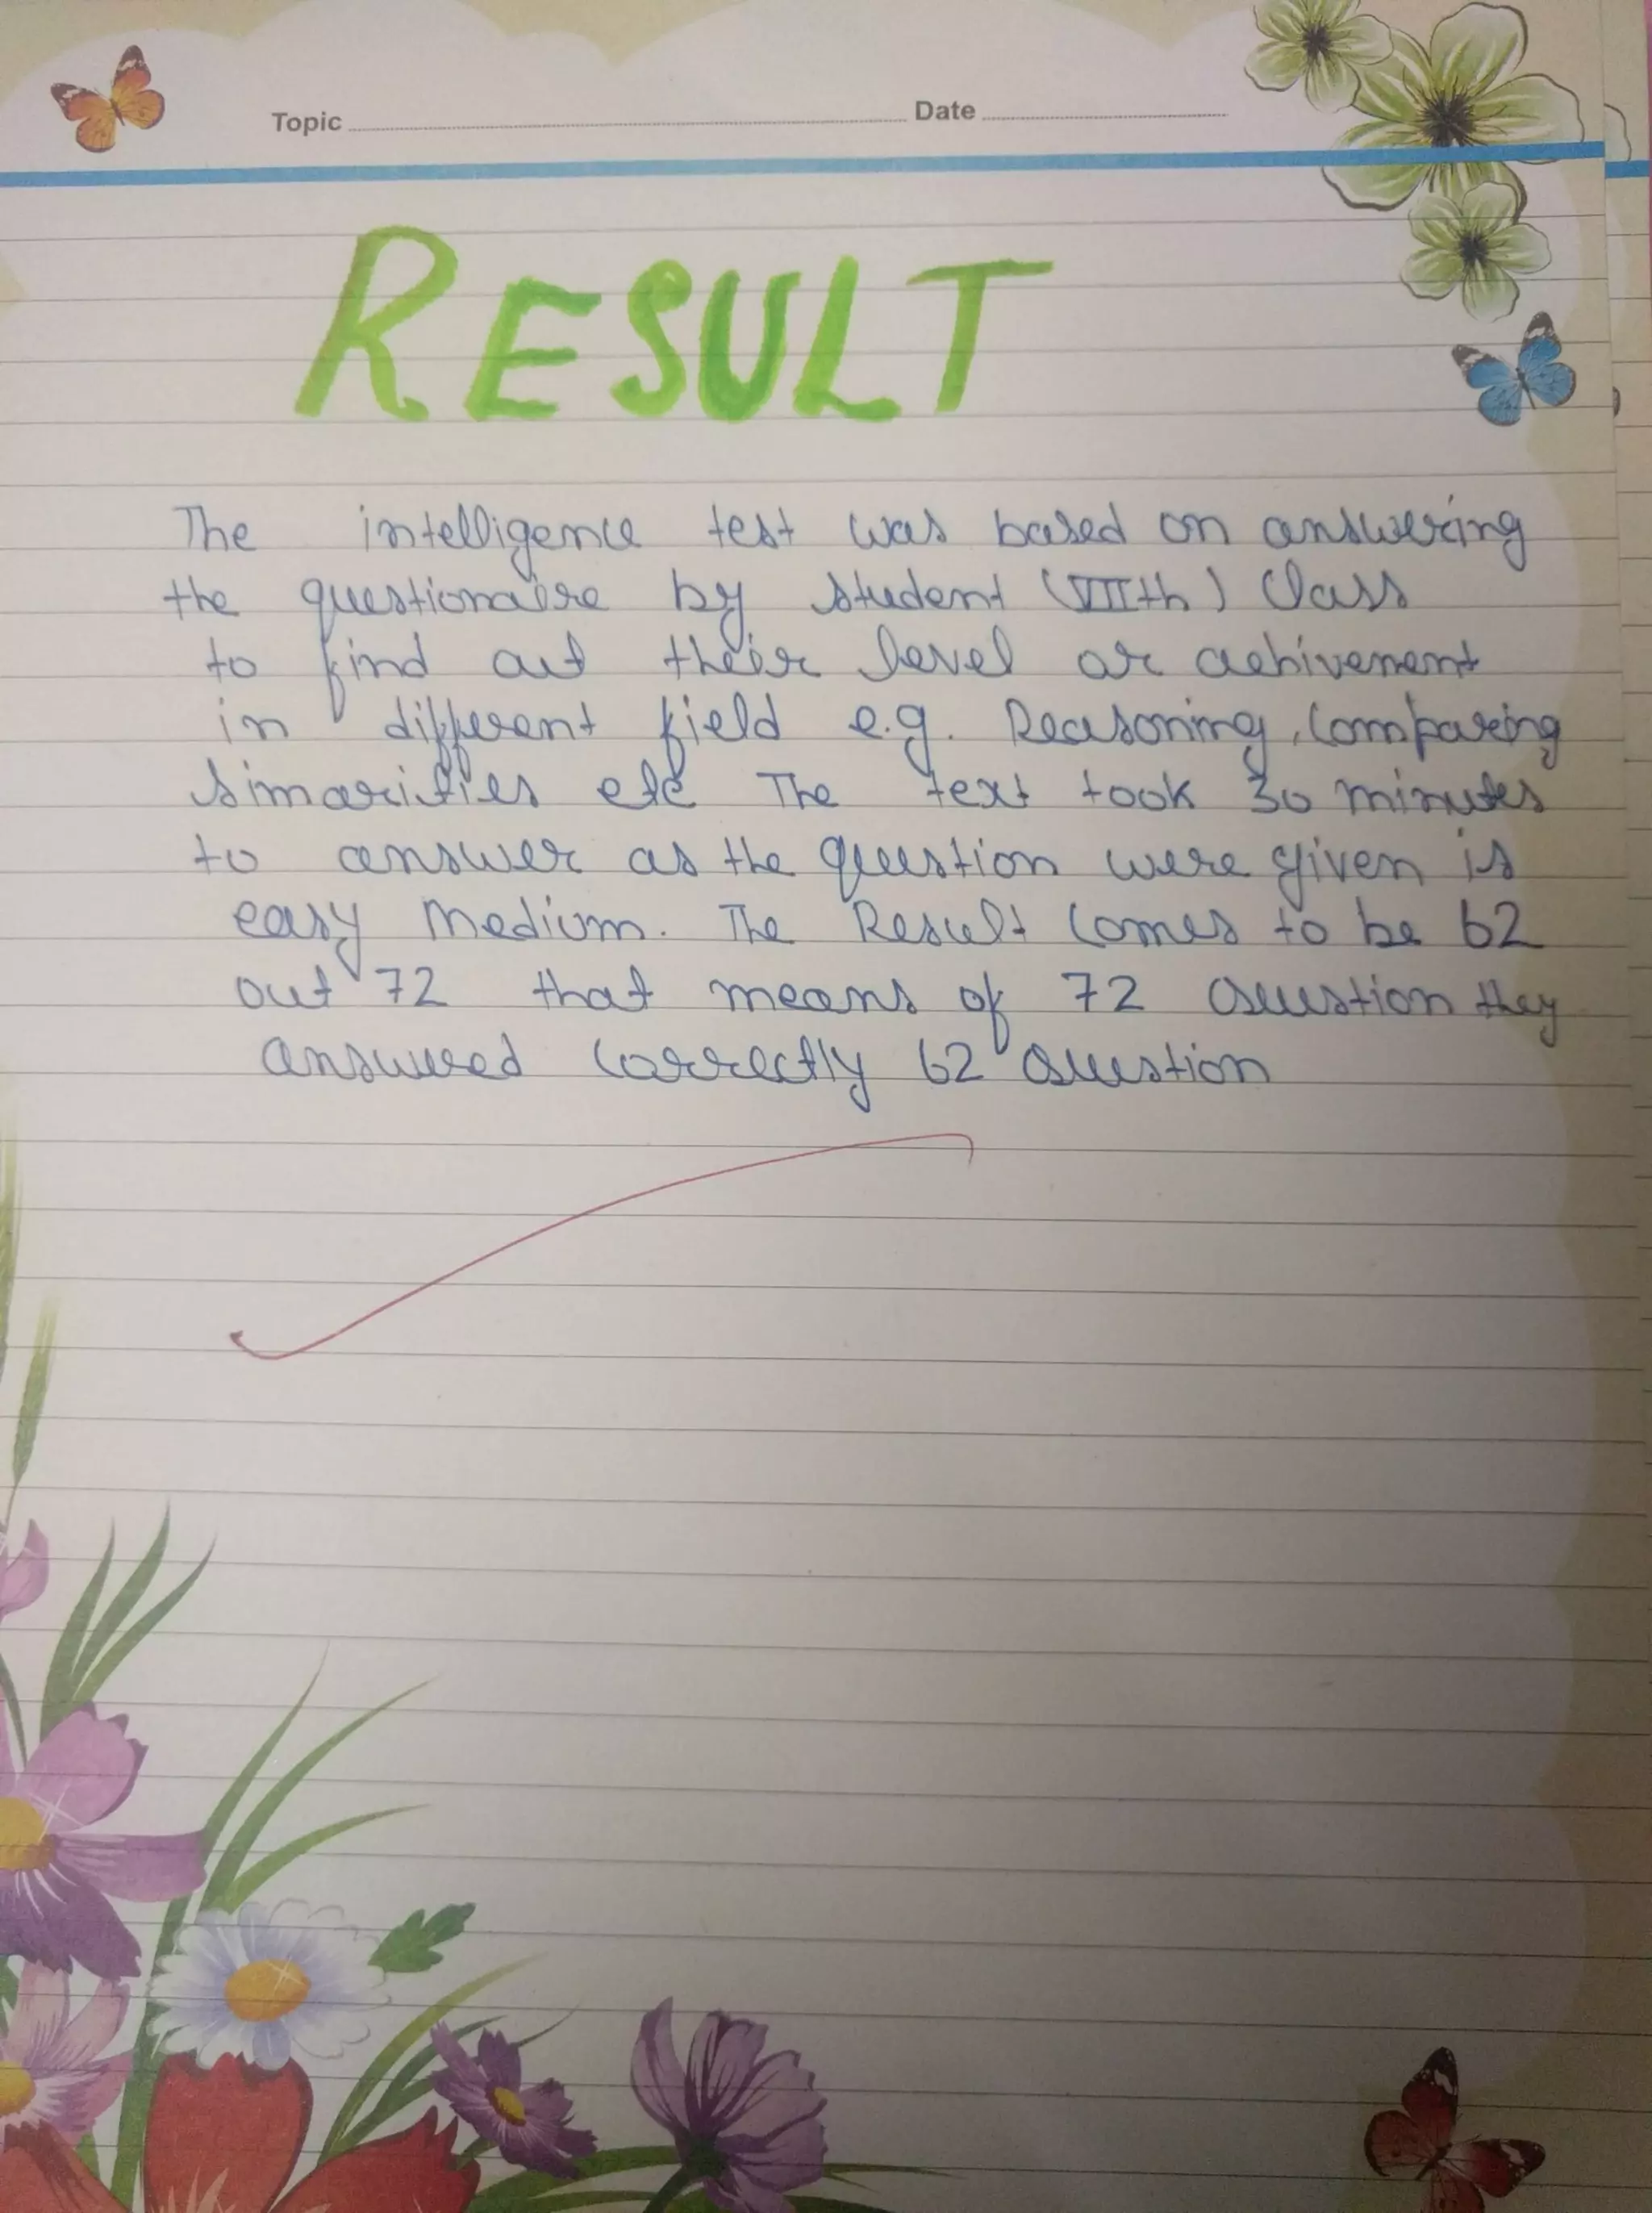 Topic Date
RESULT
The intelligence test was based on answering
the questionaire by student (VIIth) Class
to find out their level or achivement
in different field e.g. Reasoning, Comparing
simarities etc The text took 30 minutes
to answer as the question were given is
easy Medium. The Result comes to be 62
out 72 that means of 72 Question they
answered correctly 62 Question